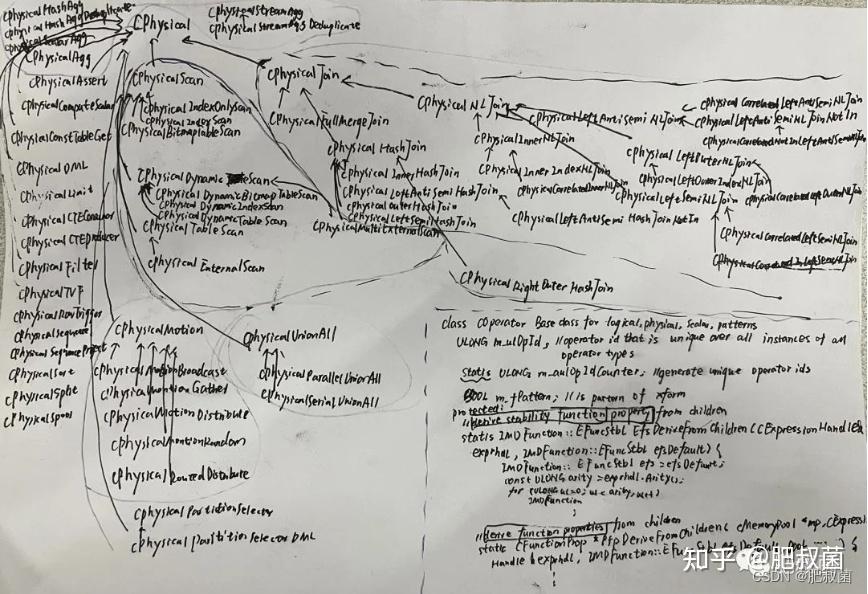 CPhysicalHashAgg
CPhysicalHashAggDeduplicate
CPhysicalScalarAgg
CPhysicalAgg
CPhysicalAssert
CPhysicalComputeScalar
CPhysicalConstTableGet
CPhysical DML
CPhysicalLimit
CPhysicalCTEConsumer
CPhysicalCTEProducer
CPhysicalFilter
CPhysicalTVF
CPhysicalRowTrigger
CPhysicalSequence
CPhysicalSequenceProject
CPhysicalSort
CPhysicalSplit
CPhysicalSpool
CPhysical
CPhysicalStreamAgg
CPhysicalStreamAggDeduplicate
CPhysicalScan
CPhysicalIndexOnlyScan
CPhysicalIndexScan
CPhysicalBitmapTableScan
CPhysicalDynamicScan
CPhysical DynamicBitmapTableScan
CPhysical DynamicIndexScan
CPhysicalDynamicTableScan
CPhysicalTableScan
CPhysicalMultiExternalScan
CPhysicalExternalScan
CPhysicalJoin
CPhysicalFullMergeJoin
CPhysical HashJoin
CPhysical InnerHashJoin
CPhysicalLeftAntiSemi HashJoin
CPhysicalOuterHashJoin
CPhysicalLeftSemiHashJoin
CPhysicalLeftAntiSemi HashJoin NotIn
CPhysicalRightOuter HashJoin
CPhysical NLJoin
CPhysicalInnerNLJoin
CPhysical InnerIndexNLJoin
CPhysicalCorrelatedInnerNLJoin
CPhysicalLeftAntiSemi NLJoin
CPhysical CorrelatedLeftAntiSemiNLJoin
CPhysicalLeftAntiSemiNLJoin NotIn
CPhysicalCorrelatedNotInLeftAntiSemiNLJoin
CPhysical LeftOuterNLJoin
CPhysicalLeftOuterIndexNLJoin
CPhysicalCorrelatedLeftOuterNLJoin
CPhysicalLeftSemiNLJoin
CPhysicalCorrelatedLeftSemiNLJoin
CPhysicalCorrelatedInLeftSemiNLJoin
CPhysicalMotion
CPhysicalMotionBroadcast
CPhysicalMotionGather
CPhysicalMotionDistribute
CPhysicalMotionRandom
CPhysicalRoutedDistribute
CPhysicalUnionAll
CPhysicalParallelUnionAll
CPhysicalSerialUnionAll
CPhysicalPartitionSelector
CPhysical PartitionSelector DML
class COperator Base class for logical, physical, scalar, patterns
ULONG m_ulOpId, //operator id that is unique over all instances of all
operator types
static ULONG m_aulOpIdCounter; //generate unique operator ids
BOOL m_fPattern; // is pattern of xform
protected:
//derive stability function property from children
static IMDFunction::EFuncStbl EfsDeriveFromChildren(CExpressionHandle&
exprhdl, IMDFunction::EFuncStbl efsDefault){
IMDFunction::EFuncStbl efs=efsDefault;
const ULONG arity=exprhdl.Arity();
for (ULONG ul=0; ul<arity; ul++)
IMDFunction
//derive function properties from children
static CFunctionProp *PfpDeriveFromChildren( CMemoryPool *mp, CExpression
Handle &exprhdl, IMDFunction::EFuncStbl efsDefault,
知乎 @肥叔菌
CSDN @肥叔菌